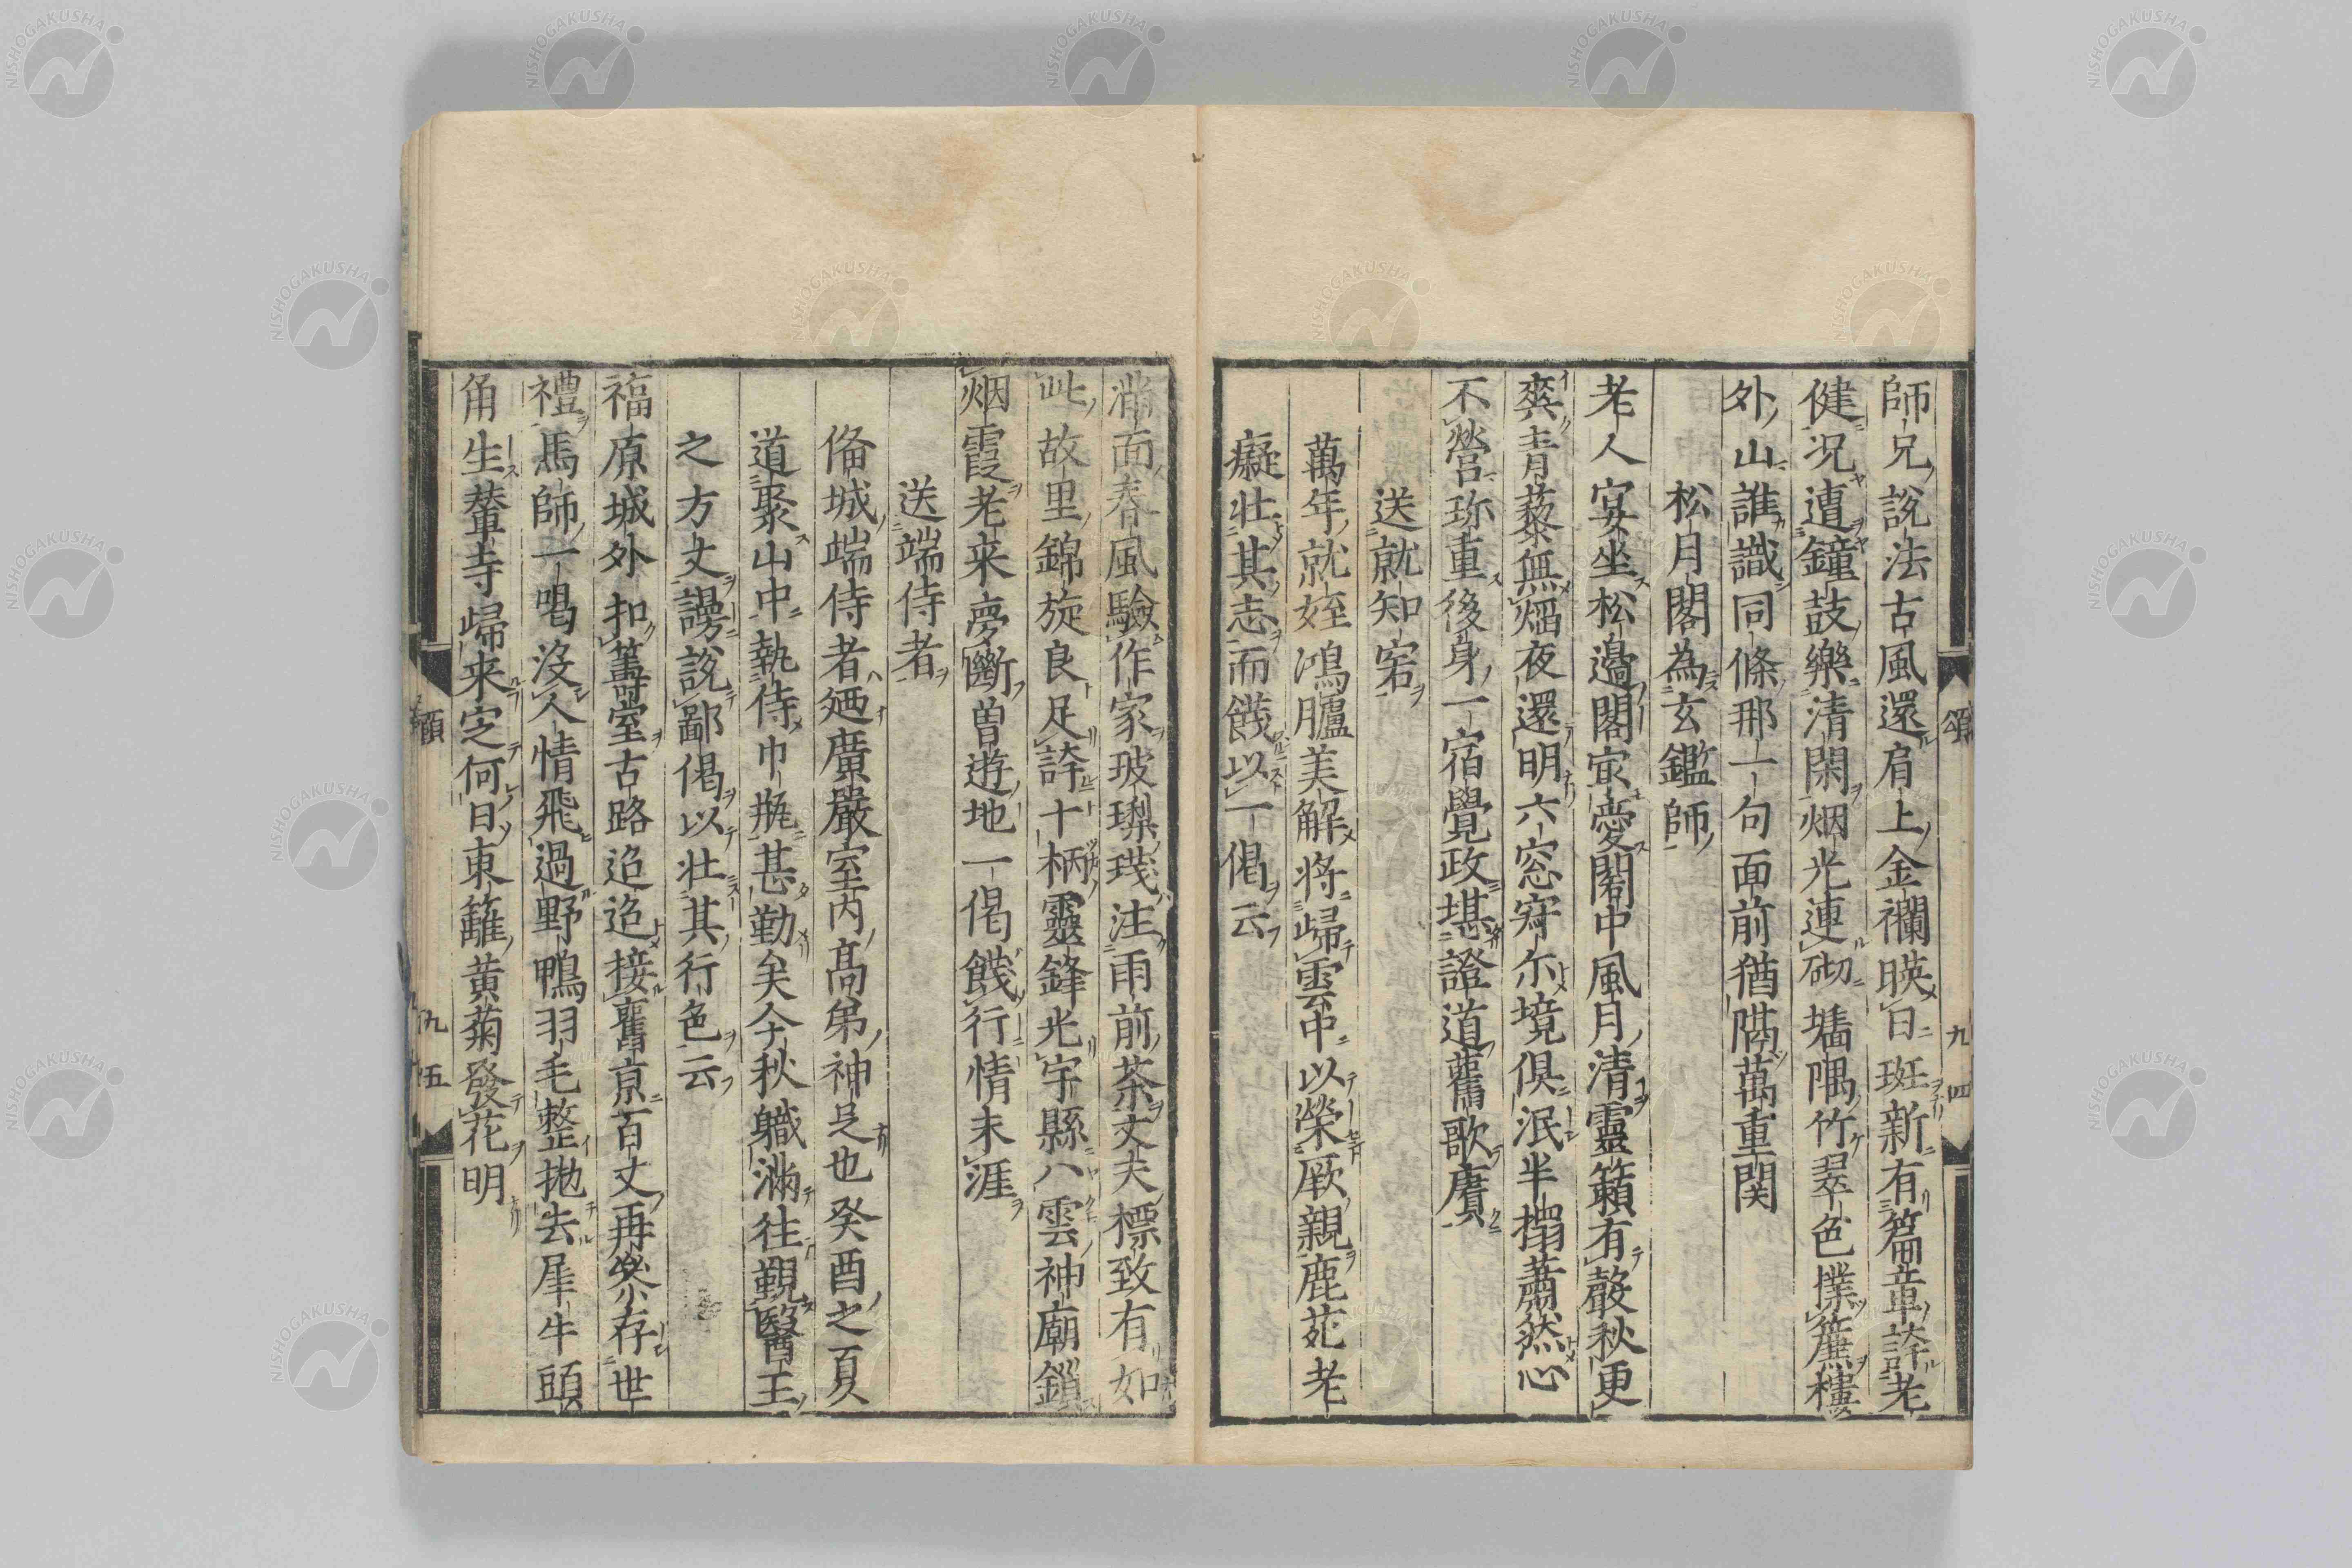 師兄說法古風還肩上金襴暎日斑新有篇章誇老
健况遺鐘鼓樂清閑烟光連砌墻隅竹翠色撲簾樓
外山誰識同條那一句面前猶隔萬重関
松月閣為玄鑑師
老人宴坐松邊閣寂愛閣中風月清靈籟有聲秋更
爽青藜無熖夜還明六窓寂尓境俱泯半榻蕭然心
不營珎重後身一宿覺政堪證道舊歌賡
送就知宕
萬年就姪鴻臚美解將歸雲中以榮厥親鹿苑老
癡壮其志而餞以一偈云
頌
九四
滿面春風驗作家玻瓈琖注雨前茶丈夫標致有如
此故里錦旋良足誇十柄靈鋒光宇縣八雲神廟鎻
烟霞老来夢斷曽遊地一偈餞行情未涯
送端侍者
俻城端侍者廼廣嚴室内髙弟神足也癸酉之夏
道聚山中執侍巾瓶甚勤矣今秋職滿往覲醫王
之方丈謾說鄙偈以壮其行色云
福原城外扣籌室古路迢迢接舊京百丈再叅存世
禮馬師一喝沒人情飛過野鴨羽毛整抛去犀牛頭
角生輦寺歸来定何日東籬黄菊發花明
九五
NISHOGAKUSHA